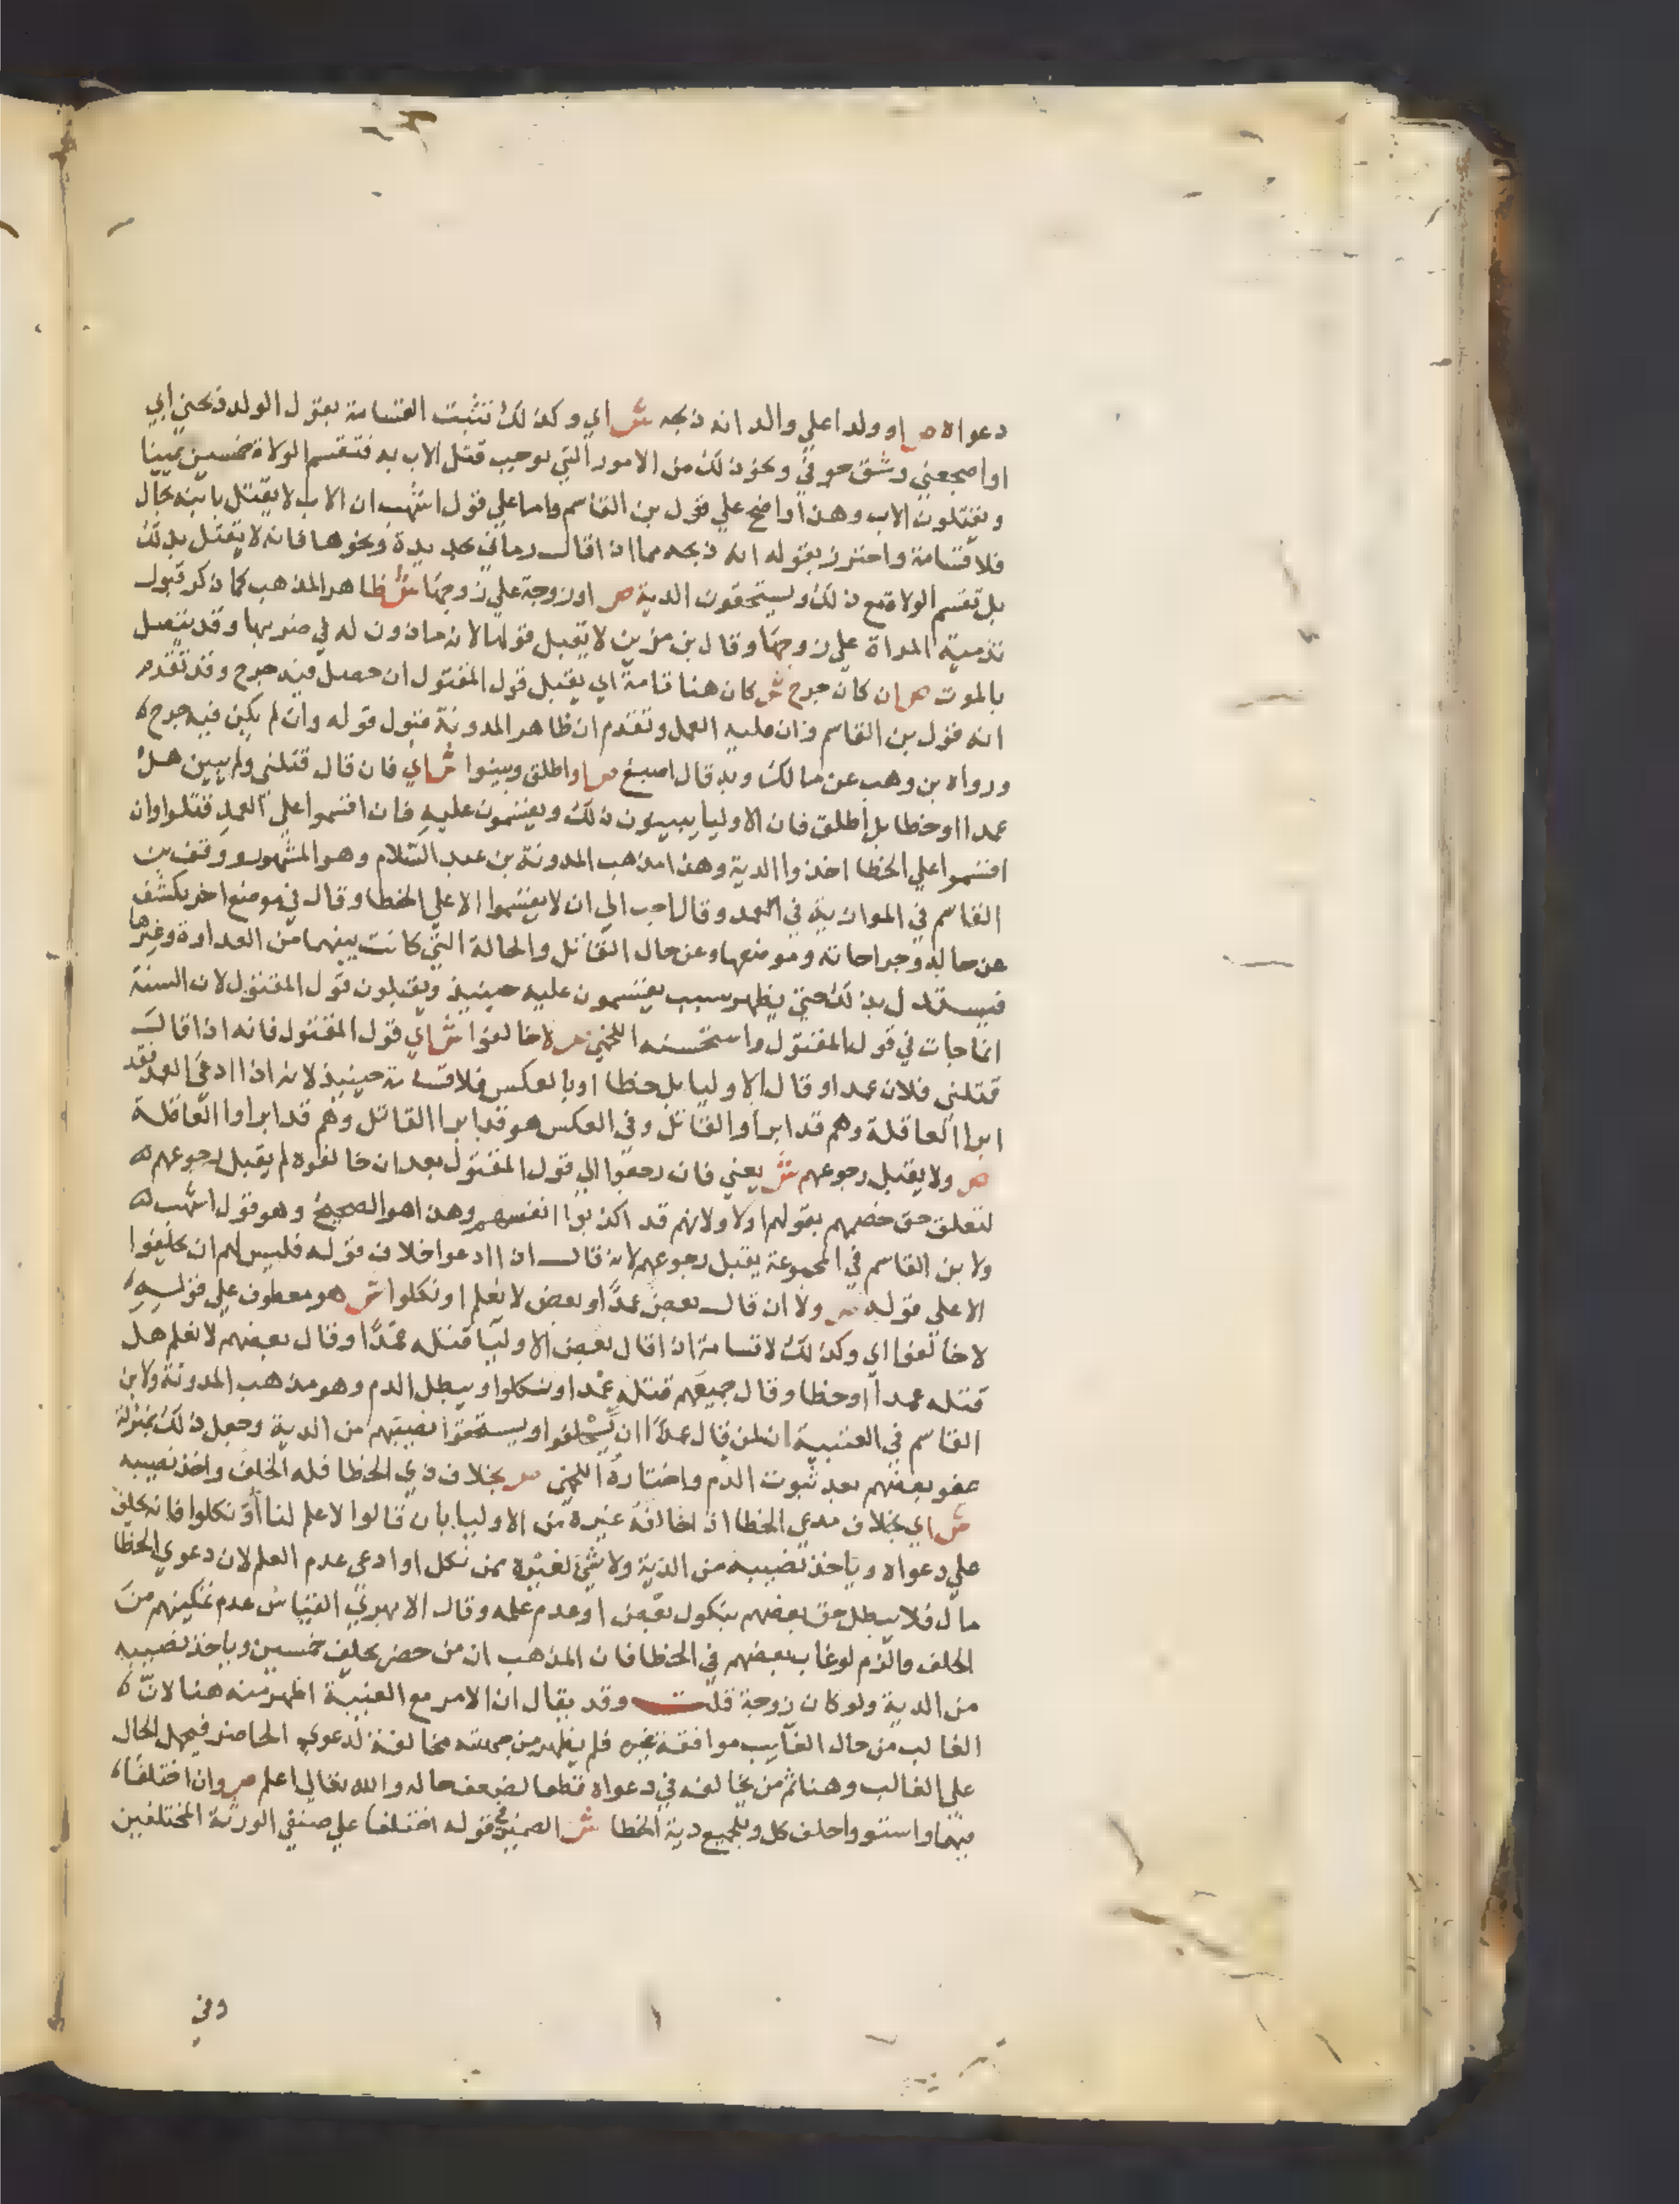 دعواه ص او ولدا علي والد انه ذبحه ش اي وكذلك تثبت القسامة بقول الولد ذبحني ابي
او اضجعني وشق جوفي ونحو ذلك من الامور التي توجب قتل الاب به فتقسم الولاة خمسين يمينا
ويقتلون الاب وهذا واضح علي قول بن القاسم واما علي قول اشهب ان الاب لا يقتل بابنه بحال
فلا قسامة واحترز بقوله انه ذبحه مما اذا قال رماني بحديدة ونحوها فانه لا يقتل بذلك
بل تقسم الولاة مع ذلك ويستحقون الدية ص او زوجة علي زوجها ش ظاهر المذهب كما ذكر قبول
تدمية المراة علي زوجها وقال بن مزين لا يقبل قولها لانه ماذون له في ضربها وقد يتصل
بالموت ص ان كان جرح ش كان هنا تامة اي يقبل قول المقتول ان حصل فيه جرح وقد تقدم
انه قول بن القاسم وان عليه العمل وتقدم ان ظاهر المدونة قبول قوله وان لم يكن فيه جرح
ورواه بن وهب عن مالك وبه قال اصبغ ص او اطلق وبينوا ش اي فان قال قتلني ولم يبين هل
عمدا او خطا بل اطلق فان الاوليا يبينون ذلك ويقسمون عليه فان اقسموا علي العمد قتلوا وان
اقسموا علي الخطا اخذوا الدية وهذا مذهب المدونة بن عبد السلام وهو المشهور ووقف بن
القاسم في الموازية في العمد وقال احب الي ان لا يقسموا الا علي الخطا وقال في موضع اخر يكشف
عن حاله وجراحاته وموضعها وعن حال القاتل والحالة التي كانت بينهما من العداوة وغيرها
فيستدل بذلك حتي يظهر سبب يقسمون عليه حينيذ ويقبلون قول المقتول لان السنة
انما جات في قول المقتول واستحسنه اللخمي ص لا خالفوا ش اي قول المقتول فانه اذا قال
قتلني فلان عمدا وقال الاوليا بل خطا او بالعكس فلا قسامة حينيذ لانه اذا ادعي العمد فقد
ابرا العاقلة وهم قد ابراوا القاتل وفي العكس هو قد ابرا القاتل وهم قد ابراوا العاقلة
ص ولا يقبل رجوعهم ش يعني فان رجعوا الي قول المقتول بعد ان خالفوه لم يقبل رجوعهم
لتعلق حق خصمهم بقولهم اولا ولانهم قد اكذبوا انفسهم وهذا هو الصحيح وهو قول اشهب
ولا بن القاسم في المجموعة يقبل رجوعهم لانه قال اذا ادعوا خلاف قوله فليس لهم ان يحلفوا
الا علي قوله ص ولا ان قال بعض عمدا وبعض لا نعلم او نكلوا ش هو معطوف علي قوله
لا خالفوا اي وكذلك لا قسامة اذا قال بعض الاوليا قتله عمدا وقال بعضهم لا نعلم هل
قتله عمدا او خطا وقال جميعهم قتله عمدا ونكلوا ويبطل الدم وهو مذهب المدونة ولابن
القاسم في العتبية ان لمن قال عمدا ان يحلفوا ويستحقوا نصيبهم من الدية وجعل ذلك بمنزلة
عفو بعضهم بعد ثبوت الدم واختاره اللخمي ص بخلاف ذي الخطا فله الحلف واخذ نصيبه
ش اي بخلاف مدعي الخطا اذا خالفه غيره من الاوليا بان قالوا لا علم لنا او نكلوا فانه يحلف
علي دعواه وياخذ نصيبه من الدية ولا شي لغيره ممن نكل او ادعي عدم العلم لان دعوي الخطا
مال فلا يبطل حق بعضهم بنكول بعض او عدم علمه وقال الابهري القياس عدم تمكينهم من
الحلف والزم لو غاب بعضهم في الخطا فان المذهب ان من حضر يحلف خمسين وياخذ نصيبه
من الدية ولو كان زوجة قلت وقد يقال ان الامر مع الغيبة اظهر منه هنا لان
الغالب من حال الغايب موافقة غيره فلم يظهر من جهته مخالفة لدعوي الحاضر فيحمل الحال
علي الغالب وهنا ثم من يخالفه في دعواه قطعا لضعف حاله والله تعالي اعلم ص وان اختلفا
فيهما واستووا حلف كل وللجميع دية الخطا ش الضمير في قوله اختلفا علي صنفي الورثة المختلفين
وفي